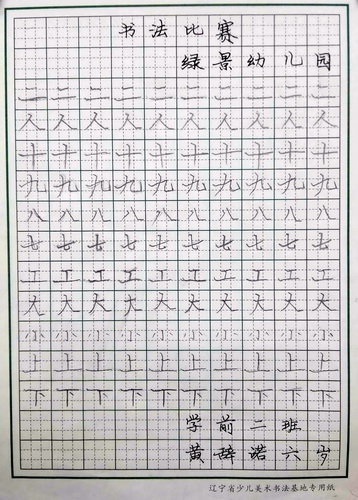 书法比赛
绿景幼儿园
二二二二二二二二二二
人人人人人人人人人人
十十十十十十十十十十
九九九九九九九九九九
八八八八八八八八八八
七七七七七七七七七七
工工工工工工工工工工
大大大大大大大大大大
小小小小小小小小小小
上上上上上上上上上上
下下下下下下下下下下
学前二班
黄辞诺六岁
辽宁省少儿美术书法基地专用纸